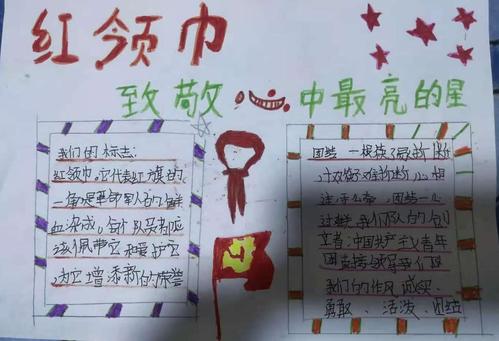 红领巾
致敬 中最亮的星
我们的标志:
红领巾,它代表红旗的
一角是革命军人的鲜
血染成,每个队员都应
该佩带它和爱护它
为它增添新的荣誉
团结 一根筷子
心相
连 手 团结一心
我们队的创
立者:中国共产主义青年
团直接领导我们队
我们的作风 诚实、
勇敢、活泼、团结